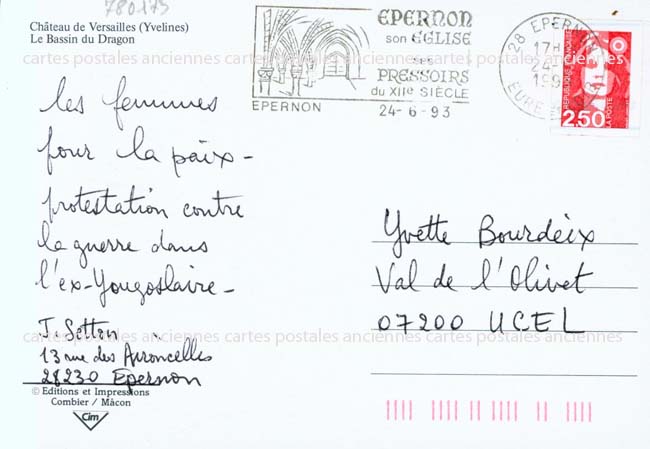 780173
Château de Versailles (Yvelines)
Le Bassin du Dragon
EPERNON
son EGLISE
ses
PRESSOIRS
du XIIe SIÈCLE
24-6-93
EPERNON
28 EPERNON
17H
24-
199
EURE
REPUBLIQUE FRANÇAISE
LA POSTE
2,50
cartes postales anciennes cartes postales anciennes cartes postales anciennes
les femmes
pour la paix -
protestation contre
la guerre dans
l'ex-Yougoslavie -
J. Setton
13 rue des Aironcelles
28230 Epernon
Yvette Bourdeix
Val de l'Olivet
07200 UCEL
cartes postales anciennes cartes postales anciennes cartes postales anciennes
© Editions et Impressions
Combier / Mâcon
Cim